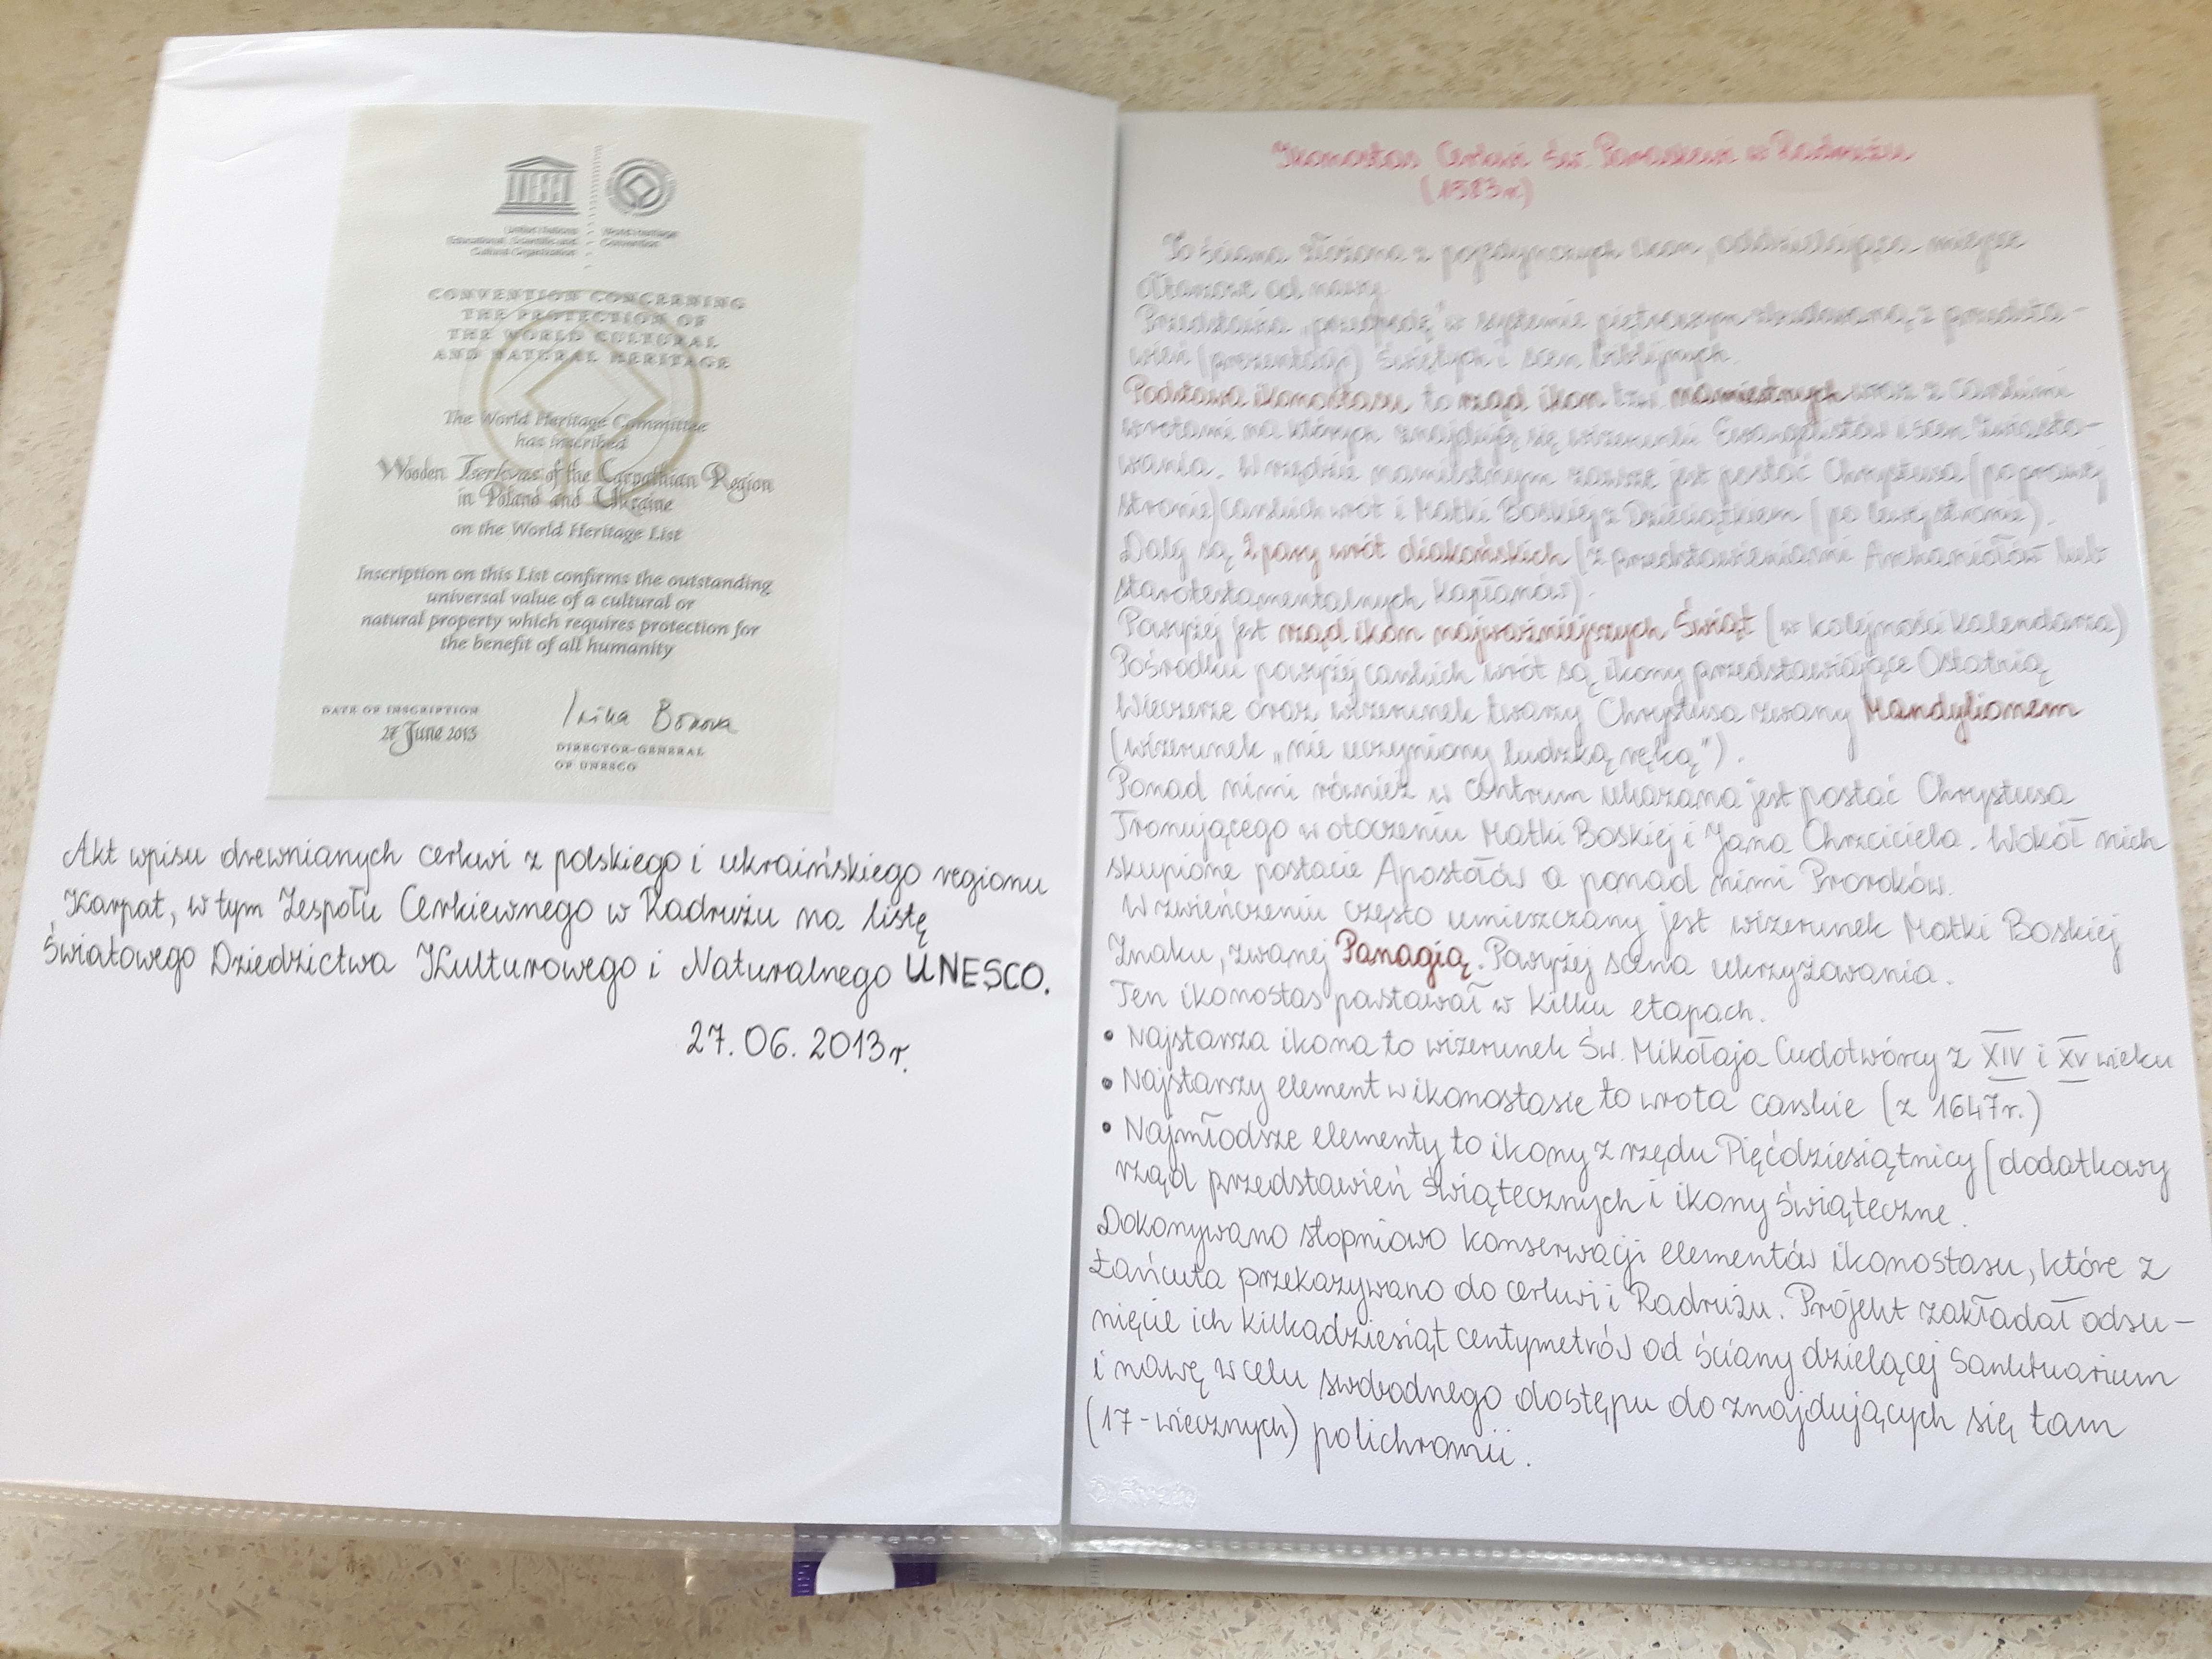 UNESCO
United Nations
Educational, Scientific and
Cultural Organization
World Heritage
Convention
CONVENTION CONCERNING
THE PROTECTION OF
THE WORLD CULTURAL
AND NATURAL HERITAGE
The World Heritage Committee
has inscribed
Wooden Tserkvas of the Carpathian Region
in Poland and Ukraine
on the World Heritage List
Inscription on this List confirms the outstanding
universal value of a cultural or
natural property which requires protection for
the benefit of all humanity
DATE OF INSCRIPTION
27 June 2013
Irina Bokova
DIRECTOR-GENERAL
OF UNESCO
Akt wpisu drewnianych cerkwi z polskiego i ukraińskiego regionu
Karpat, w tym Zespołu Cerkiewnego w Radrużu na listę
Światowego Dziedzictwa Kulturowego i Naturalnego UNESCO.
27. 06. 2013r.
Ikonostas Cerkwi Św. Paraskewi w Radrużu
(1583r.)
To ściana złożona z pojedynczych ikon, oddzielająca miejsce
ołtarzowe od nawy.
Przedstawia „przegrodę" w systemie piętrowym zbudowaną z przedsta-
wień (prezentacji) Świętych i scen biblijnych.
Podstawa ikonostasu to rząd ikon tzw. namiestnych wraz z carskimi
wrotami na których znajdują się wizerunki Ewangelistów i scen Zwiasto-
wania. W rzędzie namiestnym zawsze jest postać Chrystusa (po prawej
stronie) carskich wrót i Matki Boskiej z Dzieciątkiem (po lewej stronie).
Dalej są 2 pary wrót diakońskich (z przedstawieniami Archaniołów lub
starotestamentalnych Kapłanów).
Powyżej jest rząd ikon najważniejszych Świąt (w kolejności kalendarza)
Pośrodku powyżej carskich wrót są ikony przedstawiające Ostatnią
Wieczerze oraz wizerunek twarzy Chrystusa zwany Mandylionem
(wizerunek „nie uczyniony ludzką ręką").
Ponad nimi również w centrum ukazana jest postać Chrystusa
Tronującego w otoczeniu Matki Boskiej i Jana Chrzciciela. Wokół nich
skupione postacie Apostołów a ponad nimi Proroków.
W zwieńczeniu często umieszczany jest wizerunek Matki Boskiej
Znaku, zwanej Panagią. Powyżej scena ukrzyżowania.
Ten ikonostas powstawał w kilku etapach.
• Najstarsza ikona to wizerunek Św. Mikołaja Cudotwórcy z XIV i XV wieku
• Najstarszy element w ikonostasie to wrota carskie (z 1647r.)
• Najmłodsze elementy to ikony z rzędu Pięćdziesiątnicy (dodatkowy
rząd przedstawień świątecznych i ikony świąteczne.
Dokonywano stopniowo konserwacji elementów ikonostasu, które z
Łańcuta przekazywano do cerkwi i Radrużu. Projekt zakładał odsu-
nięcie ich kilkadziesiąt centymetrów od ściany dzielącej Sanktuarium
i nawę w celu swobodnego dostępu do znajdujących się tam
(17-wiecznych) polichromii.